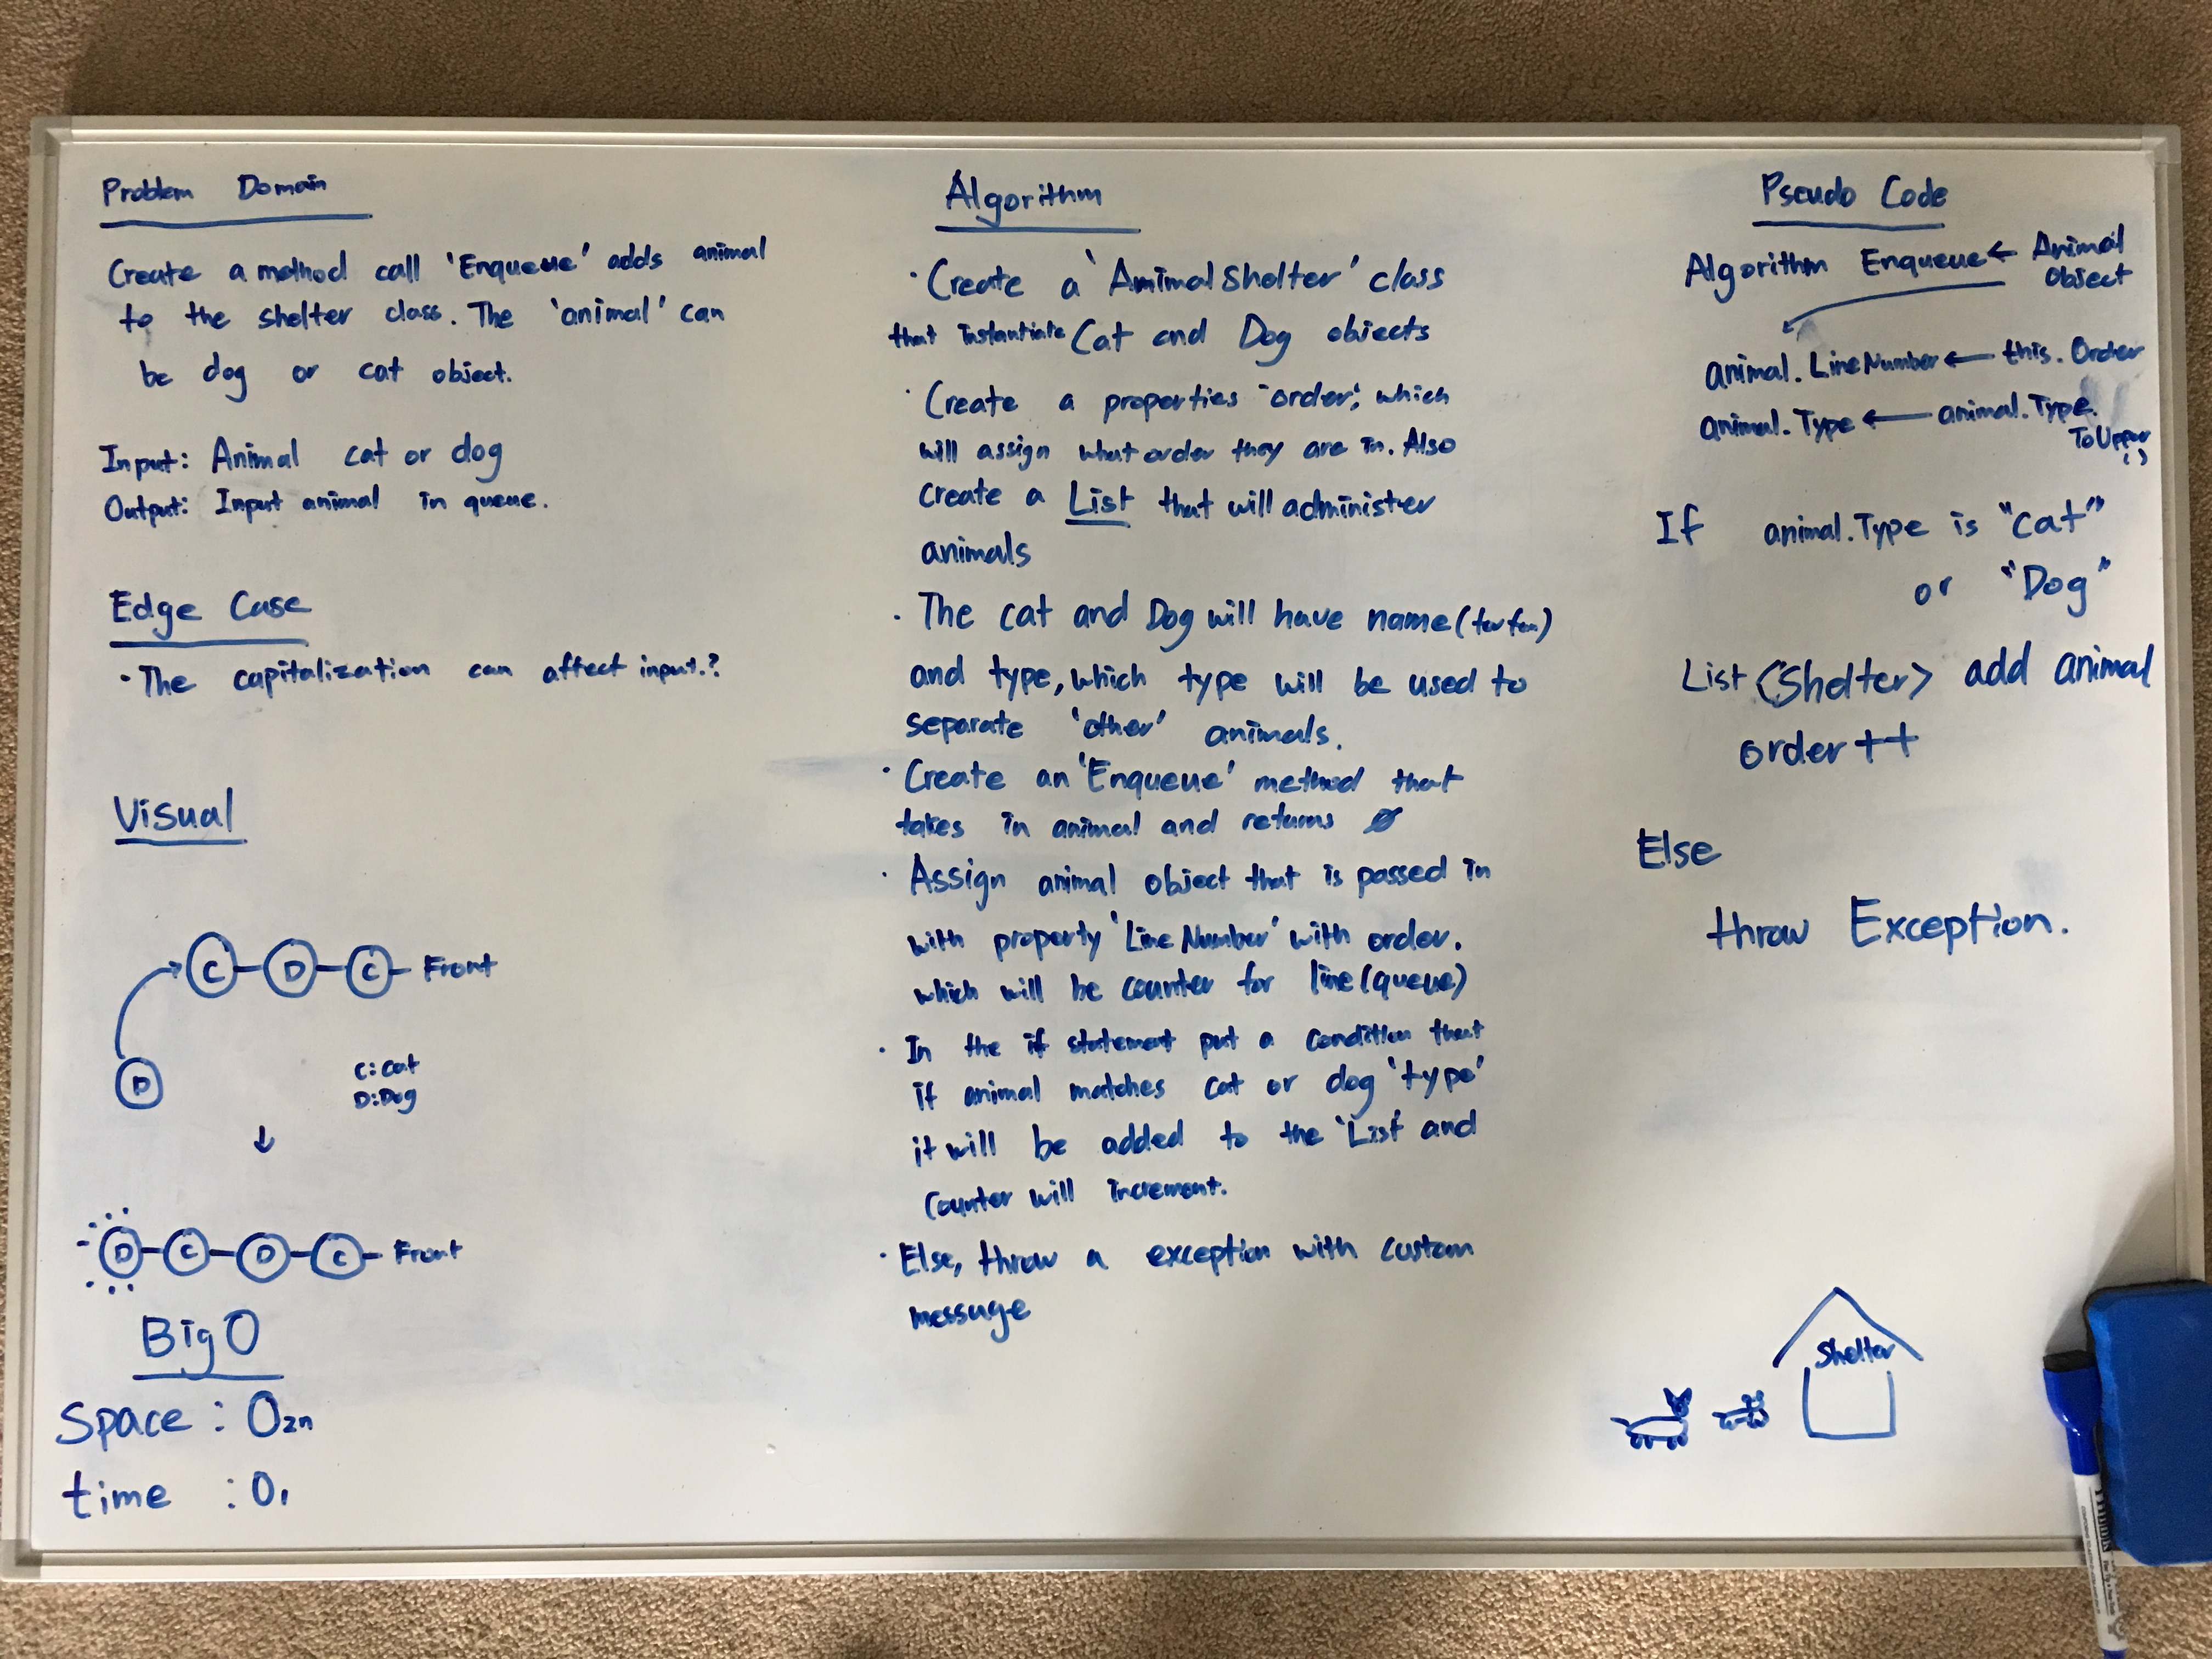 Problem Domain
Create a method call 'Enqueue' adds animal
to the shelter class. The 'animal' can
be dog or cat object.
Input: Animal cat or dog
Output: Input animal in queue.
Edge Case
· The capitalization can affect input.?
Visual
C D C Front
D
C: Cat
D: Dog
↓
D C D C Front
Big O
Space : O2n
time : O1
Algorithm
· Create a 'AmimalShelter' class
that instantiate Cat and Dog objects
· Create a properties 'order', which
will assign what order they are in. Also
create a List that will administer
animals
· The cat and Dog will have name (for fun)
and type, which type will be used to
separate 'other' animals.
· Create an 'Enqueue' method that
takes in animal and returns Ø
· Assign animal object that is passed in
with property 'Line Number' with order.
which will be counter for line (queue)
· In the if statement put a condition that
if animal matches cat or dog 'type'
it will be added to the 'List and
Counter will increment.
· Else, throw a exception with custom
message
Pseudo Code
Algorithm Enqueue ← Animal
Object
animal. LineNumber ← this. Order
animal. Type ← animal. Type.
ToUpper
()
If animal.Type is "cat"
or "Dog"
List <Shelter> add animal
order ++
Else
throw Exception.
Shelter